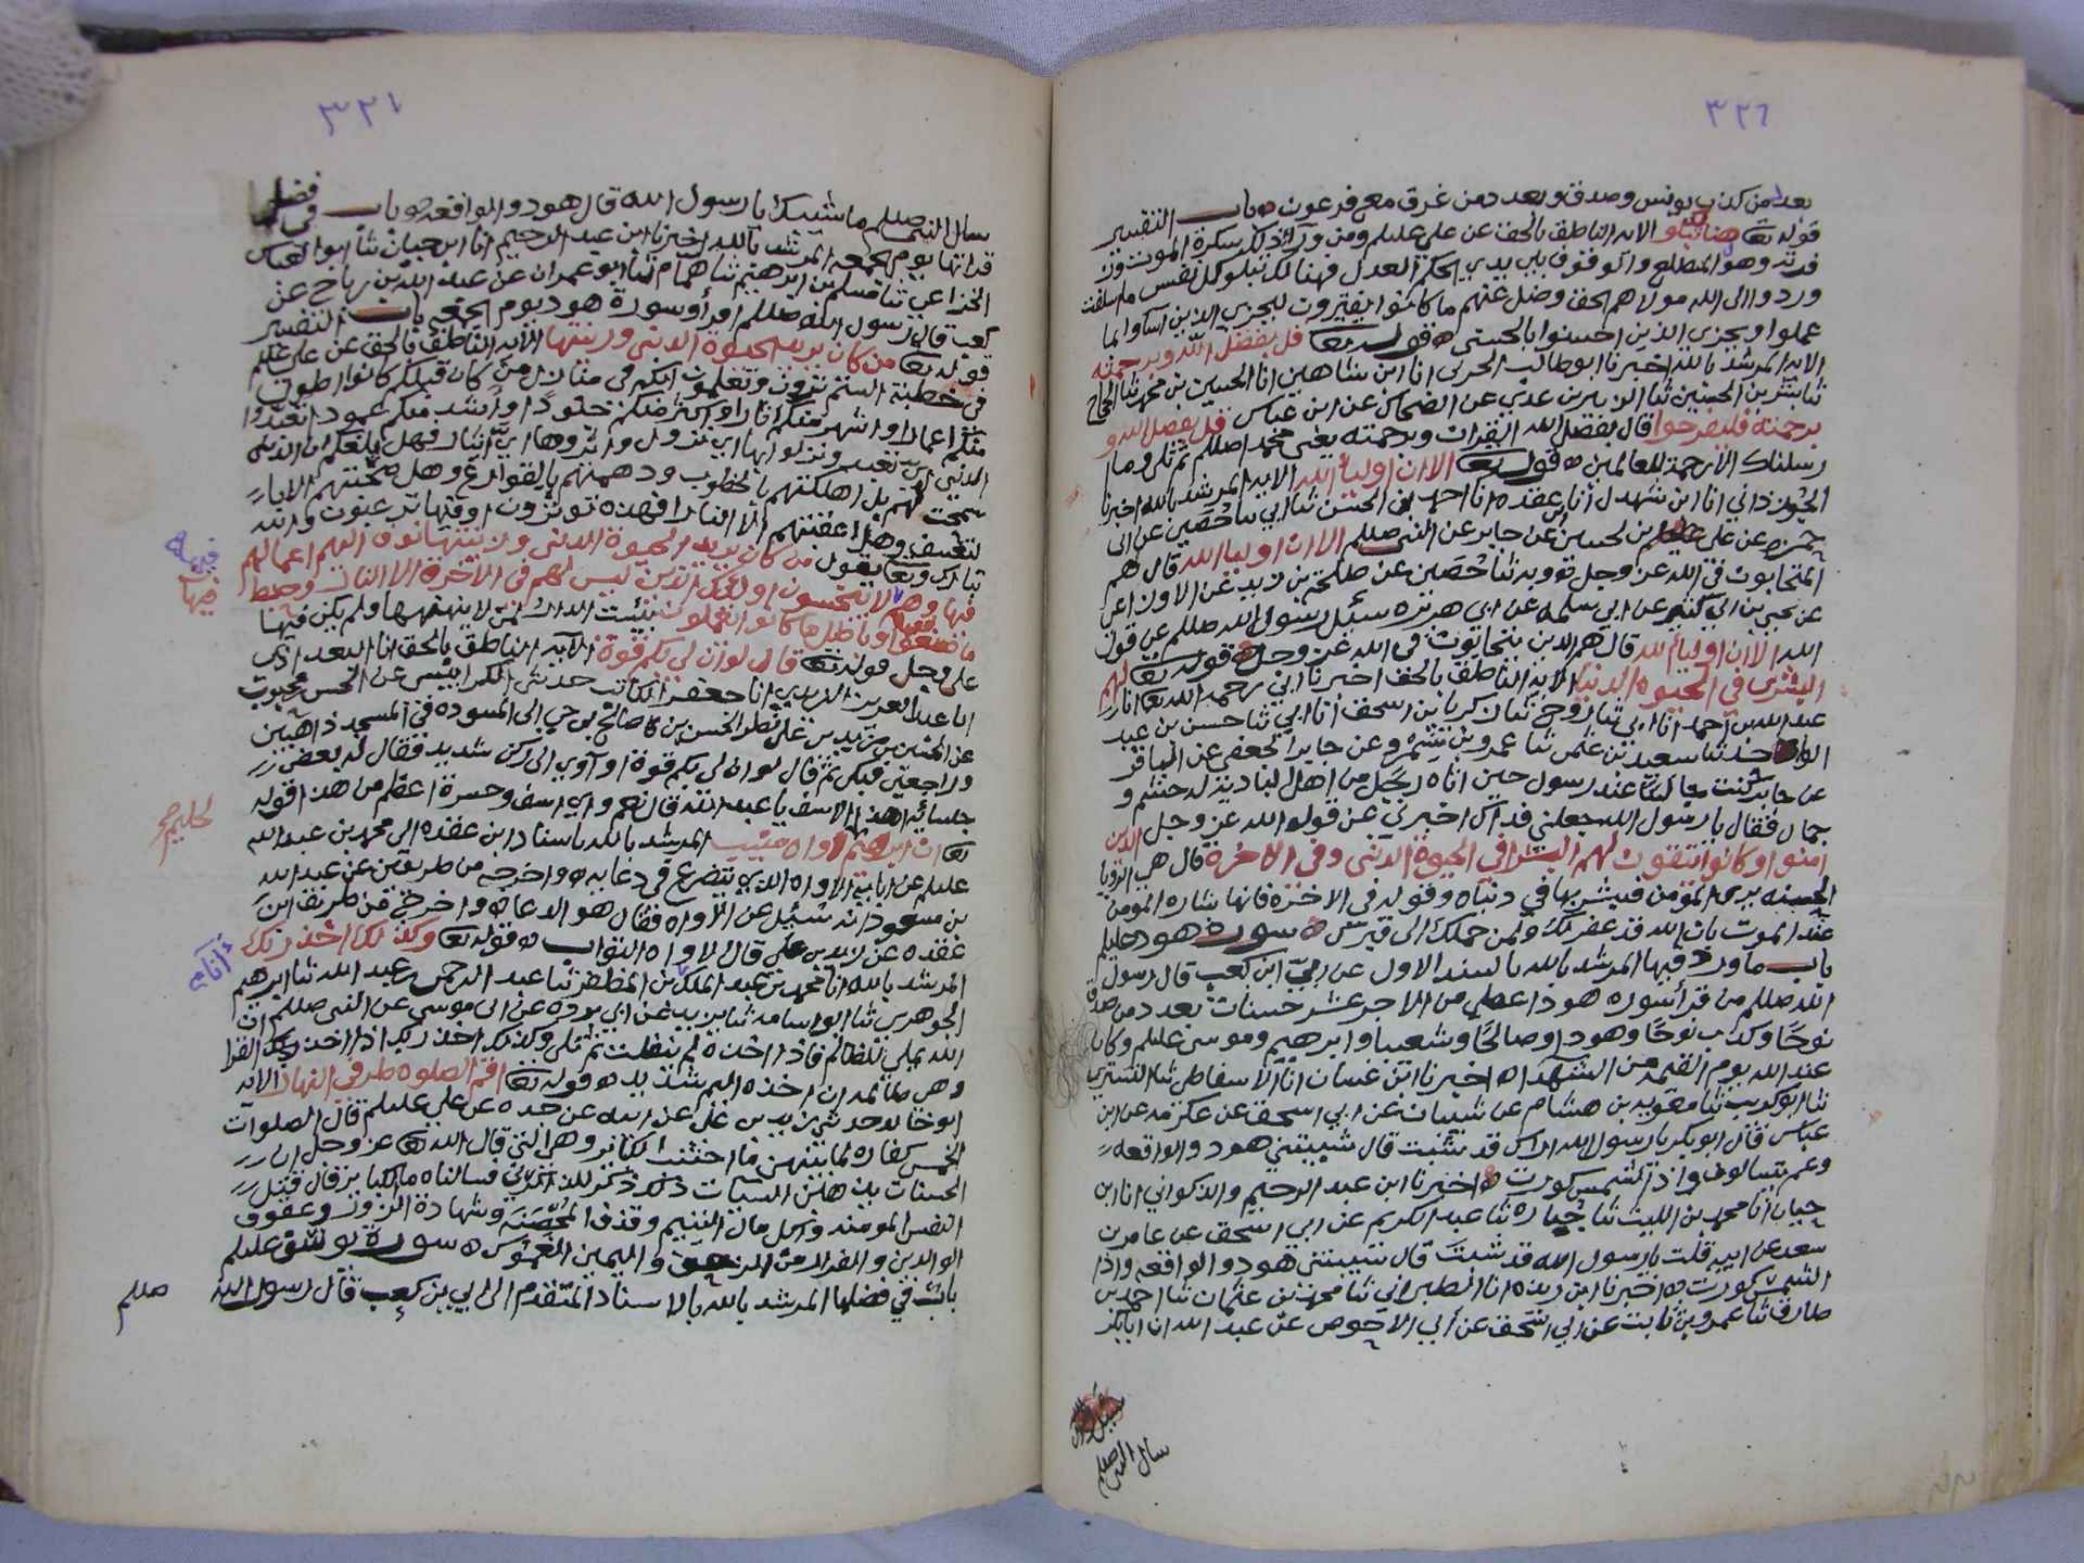 ٣٢٦
بعدد من كذب يونس وصدق وبعدد من غرق مع فرعون ه باب التفسير
قوله تعا هنالك تبلو الايه الناطق بالحق عن علي عليلم ومن ورآء ذلك سكرة الموت ورد
فدته وهو المطلع والوقوف بين يدي الحكم العدل فهنالك تبلو كل نفس ما اسلفت
وردوا الى الله مولاهم الحق وضل عنهم ما كانوا يفترون ليجزي الذين اساوا بما
عملوا ويجزي الذين احسنوا بالحسنى ه قوله تعا قل بفضل الله وبرحمته
الايه المرشد بالله اخبرنا ابو طالب الحربي انا ابن شاهين انا الحسين بن محمد ثنا الحجاج
ثنا بشر بن الحسين ثنا الزبير بن عدي عن الضحاك عن ابن عباس قل بفضل الله و
برحمته فليفرحوا قال بفضل الله القران وبرحمته يعني محمدا صللم ثم تلى وما ا
رسلناك الا رحمة للعالمين ه قوله تعا الا ان اولياء الله الايه المرشد بالله اخبرنا
الجوزداني انا ابن شهدل انا ابن عقده انا احمد بن الحسن ثنا ابي ثنا حُصَين عن ابي
حمزه عن علي بن الحسين عن جابر عن النبي صللم الا ان اوليا الله قال هم
المتحابون في الله عز وجل ه وبه ثنا حُصَين عن طلحة بن زيد عن الاوزاعي
عن يحيى بن ابي كثير عن ابي سلمه عن ابي هريره سئل رسول الله صللم عن قول
الله الا ان اولياء الله قال هم الذين يتحابون في الله عز وجل ه قوله تعا لهم
البشرى في الحيوه الدنيا الايه الناطق بالحق اخبرنا ابي رحمه الله تعا انا
عبد الله بن احمد انا ابي ثنا روح ثنا زكريا بن اسحق انا ابي ثنا حسن بن عبد
الواحد ثنا سعيد بن عثمن ثنا عمرو بن شمر وعن جابر الجعفي عن الباقر
عن جابر كنت جالسًا عند رسول حين اتاه رجل من اهل البادية له حشم و
جمال فقال يا رسول الله جعلني فداك اخبرني عن قوله الله عز وجل الذين
امنوا وكانوا يتقون لهم البشرا في الحيوة الدنى وفي الاخرة قال هي الرؤيا
الحسنه يرى المؤمن فيبشر بها في دنياه وقوله في الاخرة فانها بشاره المومن
عند الموت بان الله قد غفر لك ولمن حملك الى قبرك ه سورة هود عليلم
باب ما ورد فيها المرشد بالله بالسند الاول عن ابيّ ابن كعب قال رسول
الله صللم من قرأ سوره هود اعطي من الاجر عشر حسنات بعدد من صدق
نوحًا وكذب نوحًا وهودا وصالحًا وشعيبا وابرهيم وموسى عليلم وكان
عند الله يوم القيمه من الشهدا ه اخبرنا ابن غسان انا الاسفاطي ثنا التستري
ثنا ابو كريب ثنا معويه بن هشام عن شيبان عن ابي اسحق عن عكرمه عن ابن
عباس قال ابو بكر يا رسول الله اراك قد شبت قال شيبتني هود والواقعه
وعم يتسالون واذا الشمس كورت ه اخبرنا ابن عبد الرحيم والذكواني انا ابن
حيان انا محمد بن الليث ثنا جباره ثنا عبد الكريم عن ابي اسحق عن عامر بن
سعد عن ابيه قلت يا رسول الله قد شبتَ قال شيبتني هود والواقعه واذا
الشمس كورت ه اخبرنا ابن ريذه انا الطبراني ثنا محمد بن عثمان ثنا احمد بن
طارق ثنا عمرو بن ثابت عن ابي اسحق عن أبي الاحوص عن عبد الله ان ابا بكر
سال النبي صللم
٣٢٧
سال النبي صللم ما شيبك يا رسول الله قال هود والواقعه ه باب في فضل
قراتها يوم الجمعه المرشد بالله اخبرنا ابن عبد الرحيم انا ابن حيان ثنا ابو العباس
الخزاعي ثنا مسلم بن ابرهيم ثنا همام ثنا ابو عمران عن عبد الله بن رباح عن
كعب قال رسول الله صللم اقرأو سورة هود يوم الجمعه باب التفسير
قوله تعا من كان يريد الحيوة الدنى وزينتها الايه الناطق بالحق عن علي عليلم
في خطبة الستم ترون وتعلمون انكم في منازل من كان قبلكم كانوا اطول
منكم اعمارا واشهر منكم آثارا واكثر منكم جنودًا واشد منكم عمودا تعبدوا
الدنى اي تعبد ونزلوا بها اي نزول واثروها اي ايثار فهل بلغكم ان الدنى
سمحت لهم بل اهلكتهم بالخطوب ودهمتهم بالقوارع وهل صحبتهم الا بار
لتعسف وهل اعقبتهم الا النار افهذه توثرون او فيها ترغبون والله
تبارك وتعا يقول من كان يريد الحيوة الدنى وزينتها نوف اليهم اعمالهم
فيها وهم فيها لا يبخسون اولئك الذين ليس لهم في الآخرة الا النار وحبط
ما صنعوا فيها وباطل ما كانوا يعملون فبئست الدار لمن لا يتهمها ولم يكن فيها
على وجل قوله تعا قال لو ان لي بكم قوة الآيه الناطق بالحق انا السعد اذى
انا عبد العزيز الدبيدي انا جعفر الكاتب حدثني الكرابيسي عن الحسن بن محبوب
عن الحسين بن زيد بن علي نظر الحسن بن صالح بن حي الى المسوده في المسجد ذاهبين
وراجعين فبكى ثم قال لو ان لي بكم قوة او آوي الى ركن شديد فقال له بعض
جلسائه اهذا الاسف يا عبد الله قال نعم واي اسف وحسرة اعظم من هذا قوله
تعا ان ابرهيم لاواه منيب المرشد بالله باسناد ابن عقده الى محمد بن عبد الله
لحليم صح
عليلم عن ابايه الاواه الذي يتضرع في دعايه ه واخرجه من طريقين عن عبد الله
بن مسعود انه سئيل عن الاواه فقال هو الدعاء ه واخرج من طريق ابن
عقده عن زيد بن علي قال الاواه التواب ه قوله تعا وكذلك اخذ ربك
المرشد بالله انا محمد بن عبد الملك بن المظفر ثنا عبد الرحمن عبد الله ثنا ابرهيم
الجوهري ثنا ابو اسامه ثنا يزيد عن ابي برده عن ابي موسى عن النبي صللم ان
الله يملي للظالم فاذا اخذه لم ينفلت ثم تلى وكذلك اخذ ربك اذا اخذ القرا
وهي ظالمه ان اخذه اليم شديد ه قوله تعا اقم الصلوه طرفي النهار الايه
ابو خالد حدثني زيد بن علي عن ابيه عن جده عن علي عليلم قال الصلوات
الخمس كفاره لما بينهن ما اجتنبت الكبائر وهي التي قال الله تعا عز وجل ان
الحسنات يذهبن السيئات ذلك ذكرى للذاكرين فسالناه ما الكبائر قال قتل
النفس المومنه واكل مال اليتيم وقذف المحصَنَه وشهادة الزور وعقوق
الوالدين والفرار من الزحف واليمين الغموس ه سورة يوسف عليلم
باب في فضلها المرشد بالله بالاسناد المتقدم الى ابي بن كعب قال رسول الله صللم